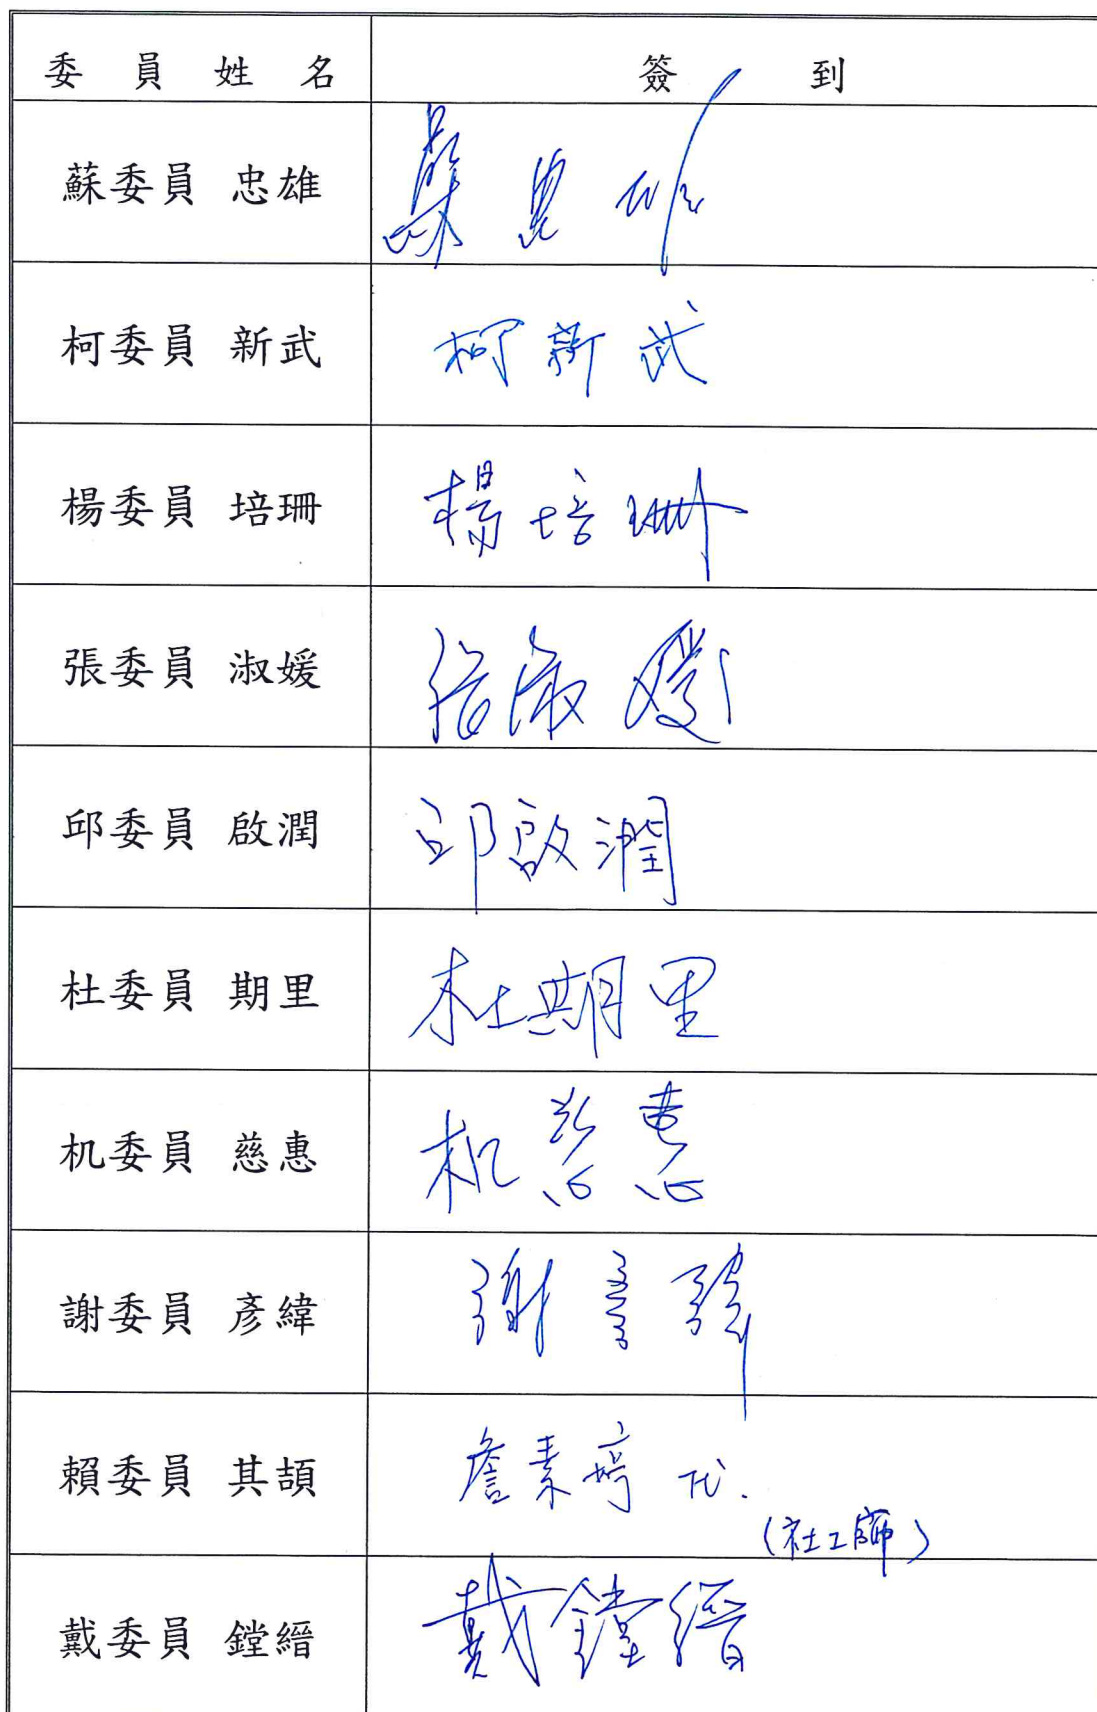 委員姓名 簽到
蘇委員 忠雄 蘇忠雄
柯委員 新武 柯新武
楊委員 培珊 楊培珊
張委員 淑媛 張淑媛
邱委員 啟潤 邱啟潤
杜委員 期里 杜期里
机委員 慈惠 机慈惠
謝委員 彥緯 謝彥緯
賴委員 其頡 詹素婷 代.
(社工師)
戴委員 鏜縉 戴鏜縉